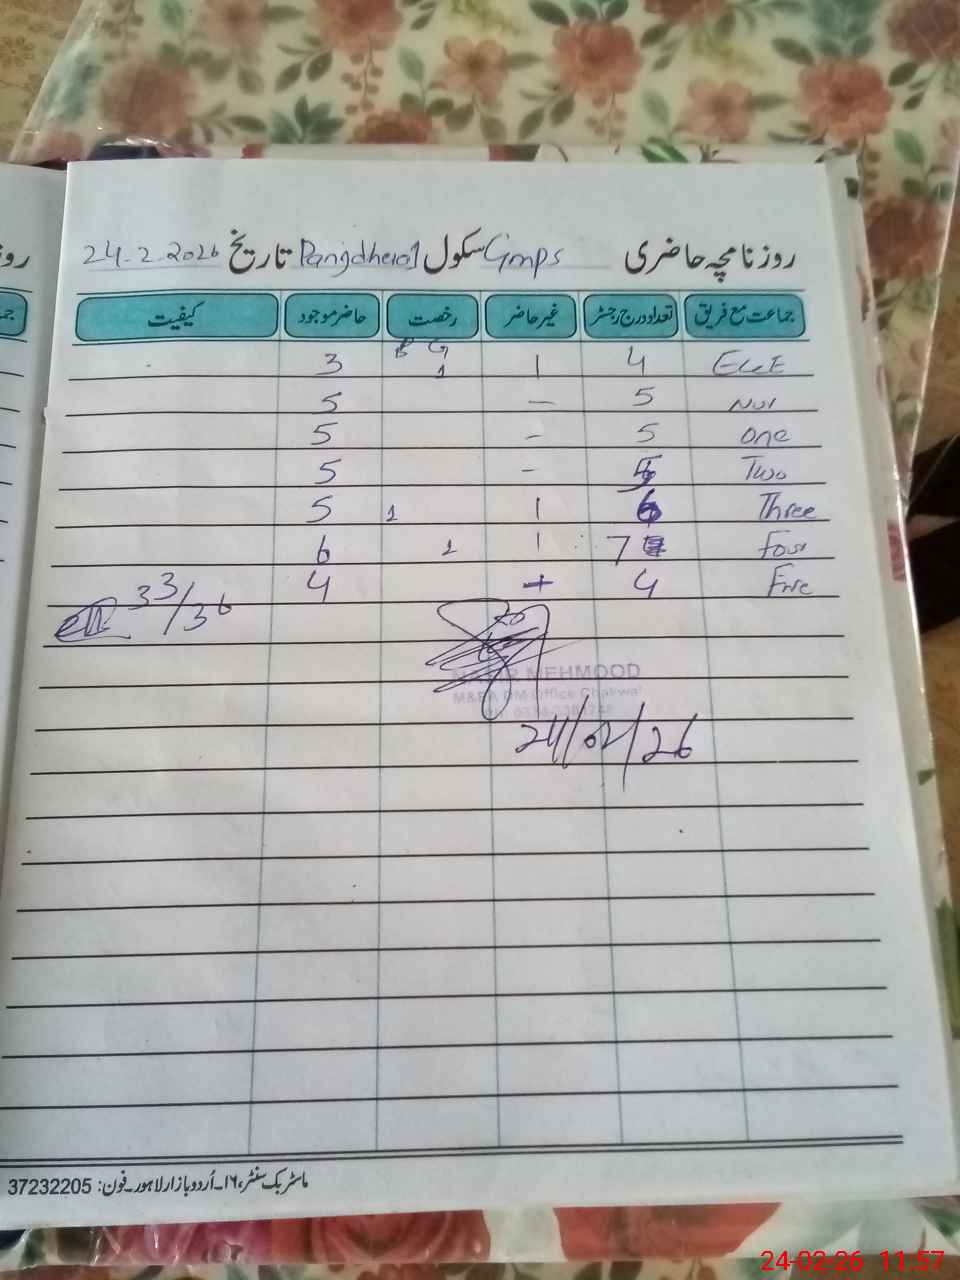 روزنامچہ حاضری Gmps سکول Pangdheral تاریخ 24-2-2026
جماعت مع فریق تعداد درج رجسٹر غیر حاضر رخصت حاضر موجود کیفیت
B G
ECCE 4 1 1 3
Nur 5 – 5
One 5 – 5
Two 5 – 5
Three 6 1 1 5
Four 7 1 1 6
Five 4 + 4
33/36
MEHMOOD
M&EA DM Office Chakwal
24/02/26
ماسٹر بک سنٹر، ۱۶-اُردو بازار لاہور-فون: 37232205
رو
جم
24-02-26 11:57